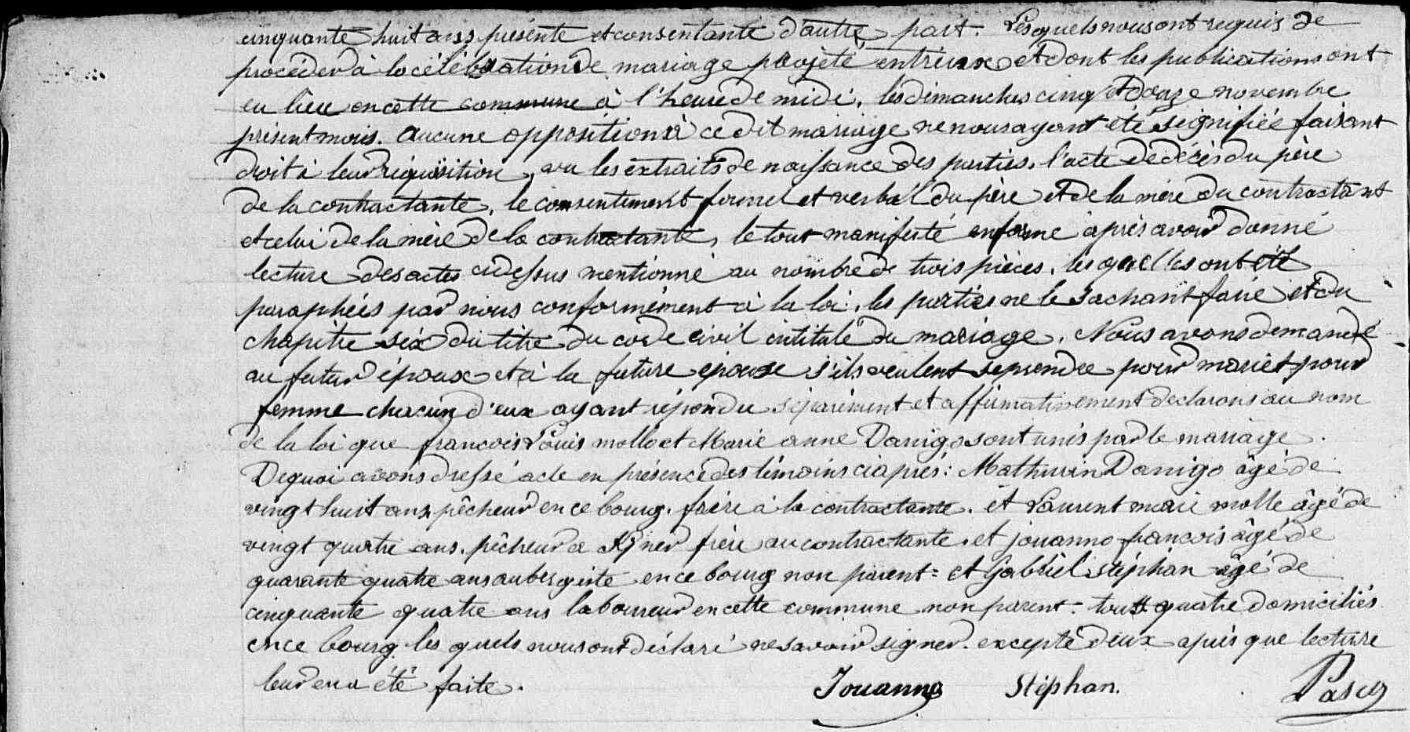 cinquante huit ans présente et consentante d'autre part. Lesquels nous ont requis de
procéder à la célébration de mariage projeté entrieux et dont les publications ont
eu lieu en cette commune à l'heure de midi, les dimanches cinq et douze novembre
présent mois. aucune opposition à ce dit mariage ne nous ayant été signifiée faisant
droit à leur réquisition, vu les extraits de naissance des parties, l'acte de décès du père
de la contractante, le consentiment formel et verbal du père et de la mère du contractant
et celui de la mère de la contractante, le tout manifesté en forme après avoir donné
lecture des actes ci dessus mentionné au nombre de trois pièces, les quelles ont été
paraphées par nous conformément à la loi, les parties ne le sachant faire et du
chapitre six du titre du code civil intitulé du mariage, Nous avons demandé
au futur époux et à la future épouse s'ils veulent se prendre pour mari et pour
femme chacun d'eux ayant répondu séparément et affirmativement declarons au nom
de la loi que françois Louis mollo et Marie anne Danigo sont unis par le mariage.
De quoi avons dressé acte en présence des témoins ci après : Mathurin Danigo âgé de
vingt huit ans, pêcheur en ce bourg, frère à la contractante, et Laurent marie mollo âgé de
vingt quatre ans, pêcheur à frère au contractante, et jouanno françois âgé de
quarante quatre ans aubergiste en ce bourg non parent = et Gabriel Stéphan âgé de
cinquante quatre ans laboureur en cette commune non parent = tous quatre domiciliés
en ce bourg, les quels nous ont déclaré ne savoir signer excepté deux après que lecture
leur en a été faite.
Jouanno Stéphan.